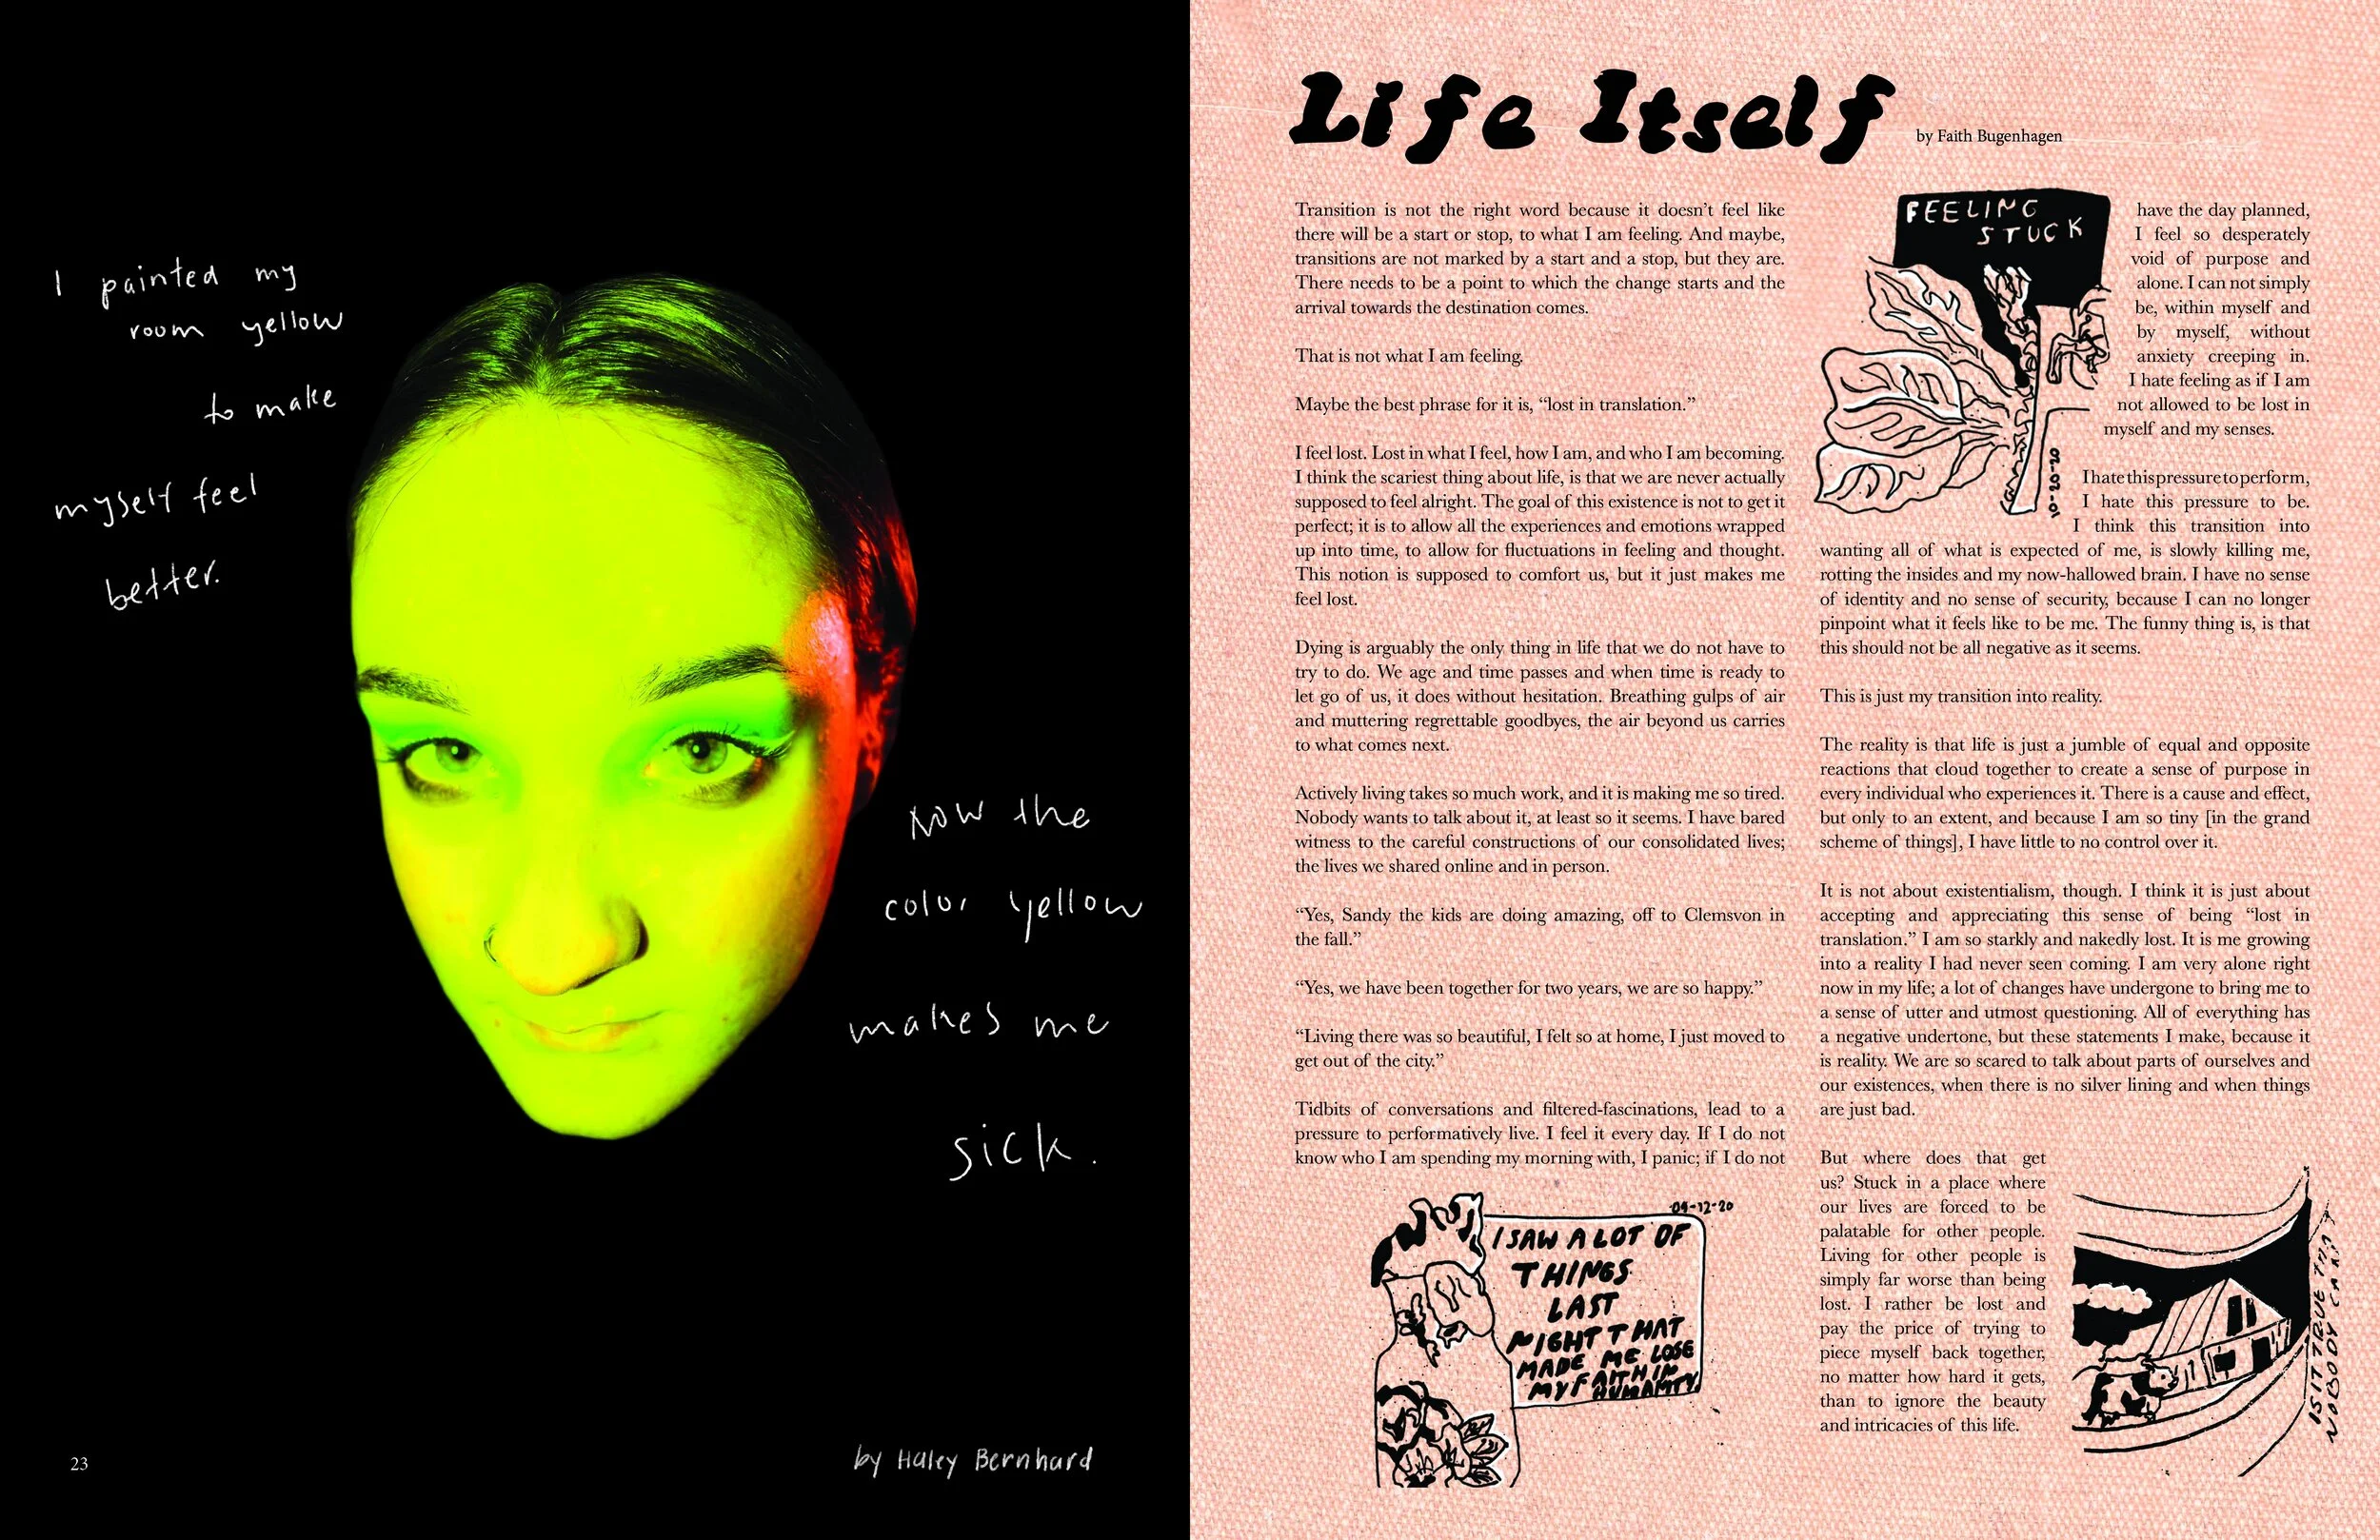 I painted my
room yellow
to make
myself feel
better.
Now the
color yellow
makes me
sick.
by Haley Bernhard
23
Life Itself
by Faith Bugenhagen
Transition is not the right word because it doesn't feel like
there will be a start or stop, to what I am feeling. And maybe,
transitions are not marked by a start and a stop, but they are.
There needs to be a point to which the change starts and the
arrival towards the destination comes.
That is not what I am feeling.
Maybe the best phrase for it is, “lost in translation.”
I feel lost. Lost in what I feel, how I am, and who I am becoming.
I think the scariest thing about life, is that we are never actually
supposed to feel alright. The goal of this existence is not to get it
perfect; it is to allow all the experiences and emotions wrapped
up into time, to allow for fluctuations in feeling and thought.
This notion is supposed to comfort us, but it just makes me
feel lost.
Dying is arguably the only thing in life that we do not have to
try to do. We age and time passes and when time is ready to
let go of us, it does without hesitation. Breathing gulps of air
and muttering regrettable goodbyes, the air beyond us carries
to what comes next.
Actively living takes so much work, and it is making me so tired.
Nobody wants to talk about it, at least so it seems. I have bared
witness to the careful constructions of our consolidated lives;
the lives we shared online and in person.
“Yes, Sandy the kids are doing amazing, off to Clemsvon in
the fall.”
“Yes, we have been together for two years, we are so happy.”
“Living there was so beautiful, I felt so at home, I just moved to
get out of the city.”
Tidbits of conversations and filtered-fascinations, lead to a
pressure to performatively live. I feel it every day. If I do not
know who I am spending my morning with, I panic; if I do not
09-12-20
I SAW A LOT OF
THINGS
LAST
NIGHT THAT
MADE ME LOSE
MY FAITH IN
HUMANITY
FEELING
STUCK
02-02-01
have the day planned,
I feel so desperately
void of purpose and
alone. I can not simply
be, within myself and
by myself, without
anxiety creeping in.
I hate feeling as if I am
not allowed to be lost in
myself and my senses.
I hate this pressure to perform,
I hate this pressure to be.
I think this transition into
wanting all of what is expected of me, is slowly killing me,
rotting the insides and my now-hallowed brain. I have no sense
of identity and no sense of security, because I can no longer
pinpoint what it feels like to be me. The funny thing is, is that
this should not be all negative as it seems.
This is just my transition into reality.
The reality is that life is just a jumble of equal and opposite
reactions that cloud together to create a sense of purpose in
every individual who experiences it. There is a cause and effect,
but only to an extent, and because I am so tiny [in the grand
scheme of things], I have little to no control over it.
It is not about existentialism, though. I think it is just about
accepting and appreciating this sense of being “lost in
translation.” I am so starkly and nakedly lost. It is me growing
into a reality I had never seen coming. I am very alone right
now in my life; a lot of changes have undergone to bring me to
a sense of utter and utmost questioning. All of everything has
a negative undertone, but these statements I make, because it
is reality. We are so scared to talk about parts of ourselves and
our existences, when there is no silver lining and when things
are just bad.
But where does that get
us? Stuck in a place where
our lives are forced to be
palatable for other people.
Living for other people is
simply far worse than being
lost. I rather be lost and
pay the price of trying to
piece myself back together,
no matter how hard it gets,
than to ignore the beauty
and intricacies of this life.
IS IT TRUE THAT
NOBODY CAN